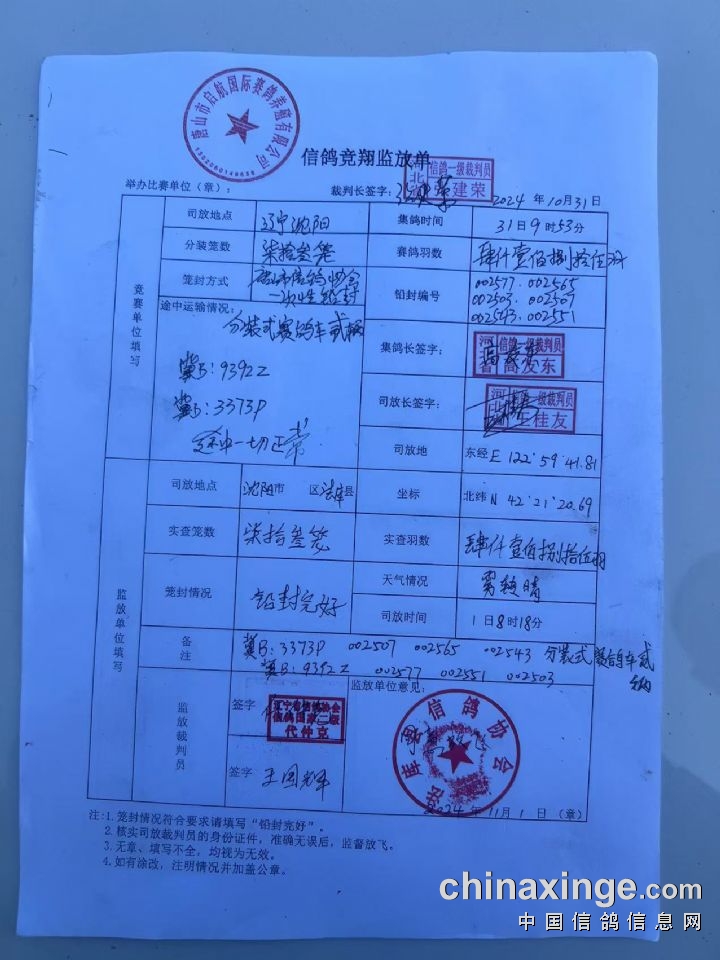 唐山市启航国际赛鸽养殖有限公司
信鸽竞翔监放单
举办比赛单位（章）：
裁判长签字：
河北省
信鸽一级裁判员
建荣
2024 年 10月31日
竞赛单位填写
司放地点
辽宁沈阳
集鸽时间
31日9时53分
分装笼数
柒拾叁笼
赛鸽羽数
肆仟壹佰捌拾伍羽
笼封方式
唐山市信鸽协会
一次性铅封
铅封编号
002577. 002565
002503. 002507
002543. 002551
途中运输情况：
分装式赛鸽车贰辆
冀B：9392Z
冀B：3373P
途中一切正常
集鸽长签字：
信鸽一级裁判员
高发东
司放长签字：
河北
一级裁判员
王桂友
司放地
东经 E 122°59′41.81
监放单位填写
司放地点
沈阳市 区 法库县
坐标
北纬 N 42°21′20.69
实查笼数
柒拾叁笼
实查羽数
肆仟壹佰捌拾伍羽
笼封情况
铅封完好
天气情况
雾转晴
司放时间
1日8时18分
备注
冀B：3373P 002507 002565 002543 分装式赛鸽车贰辆
冀B：9392Z 002577 002551 002503
监放裁判员
签字
辽宁省信鸽协会
信鸽国家二级
代仲克
签字
王国辉
监放单位意见：
法库县信鸽协会
2024 年 11月 1 日 （章）
注：1. 笼封情况符合要求请填写“铅封完好”。
2. 核实司放裁判员的身份证件，准确无误后，监督放飞。
3. 无章、填写不全，均视为无效。
4. 如有涂改，注明情况并加盖公章。
chinaxinge.com
中国信鸽信息网